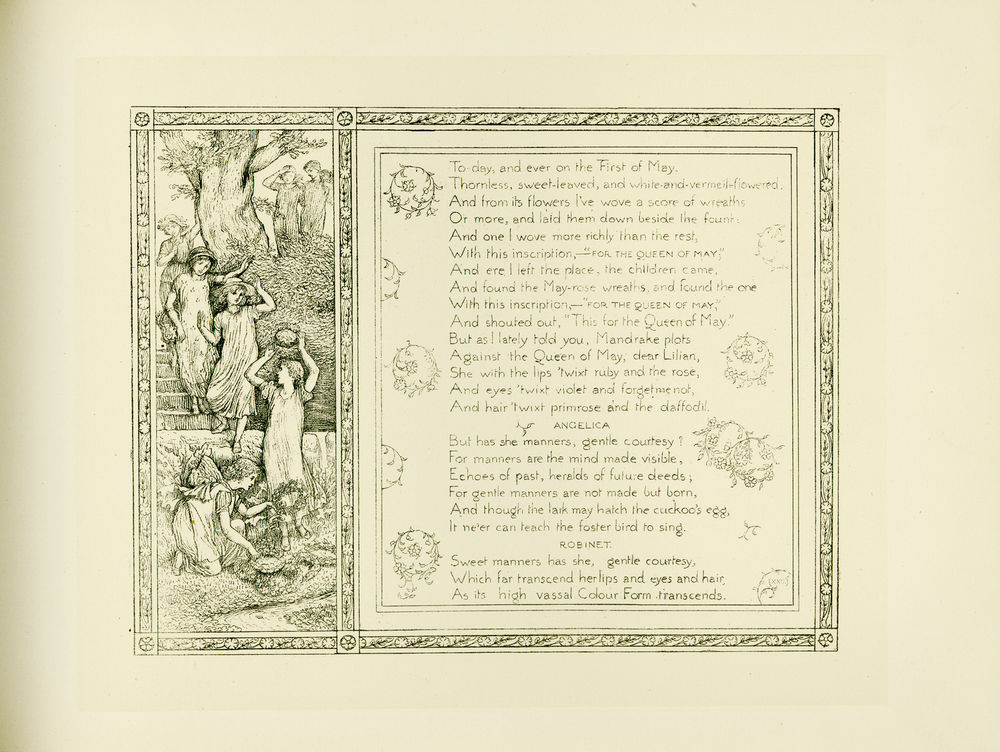 To-day, and ever on the First of May.
Thornless, sweet-leaved, and white-and-vermeil-flowered.
And from its flowers I've wove a score of wreaths
Or more, and laid them down beside the fount:
And one I wove more richly than the rest,
With this inscription,—"FOR THE QUEEN OF MAY;"
And ere I left the place, the children came,
And found the May-rose wreaths, and found the one
With this inscription,—"FOR THE QUEEN OF MAY,"
And shouted out, "This for the Queen of May."
But as I lately told you, Mandrake plots
Against the Queen of May, dear Lilian,
She with the lips 'twixt ruby and the rose,
And eyes 'twixt violet and forgetmenot,
And hair 'twixt primrose and the daffodil.
ANGELICA
But has she manners, gentle courtesy?
For manners are the mind made visible,
Echoes of past, heralds of future deeds;
For gentle manners are not made but born,
And though the lark may hatch the cuckoo's egg,
It ne'er can teach the foster bird to sing.
ROBINET.
Sweet manners has she, gentle courtesy,
Which far transcend her lips and eyes and hair,
As its high vassal Colour Form transcends.